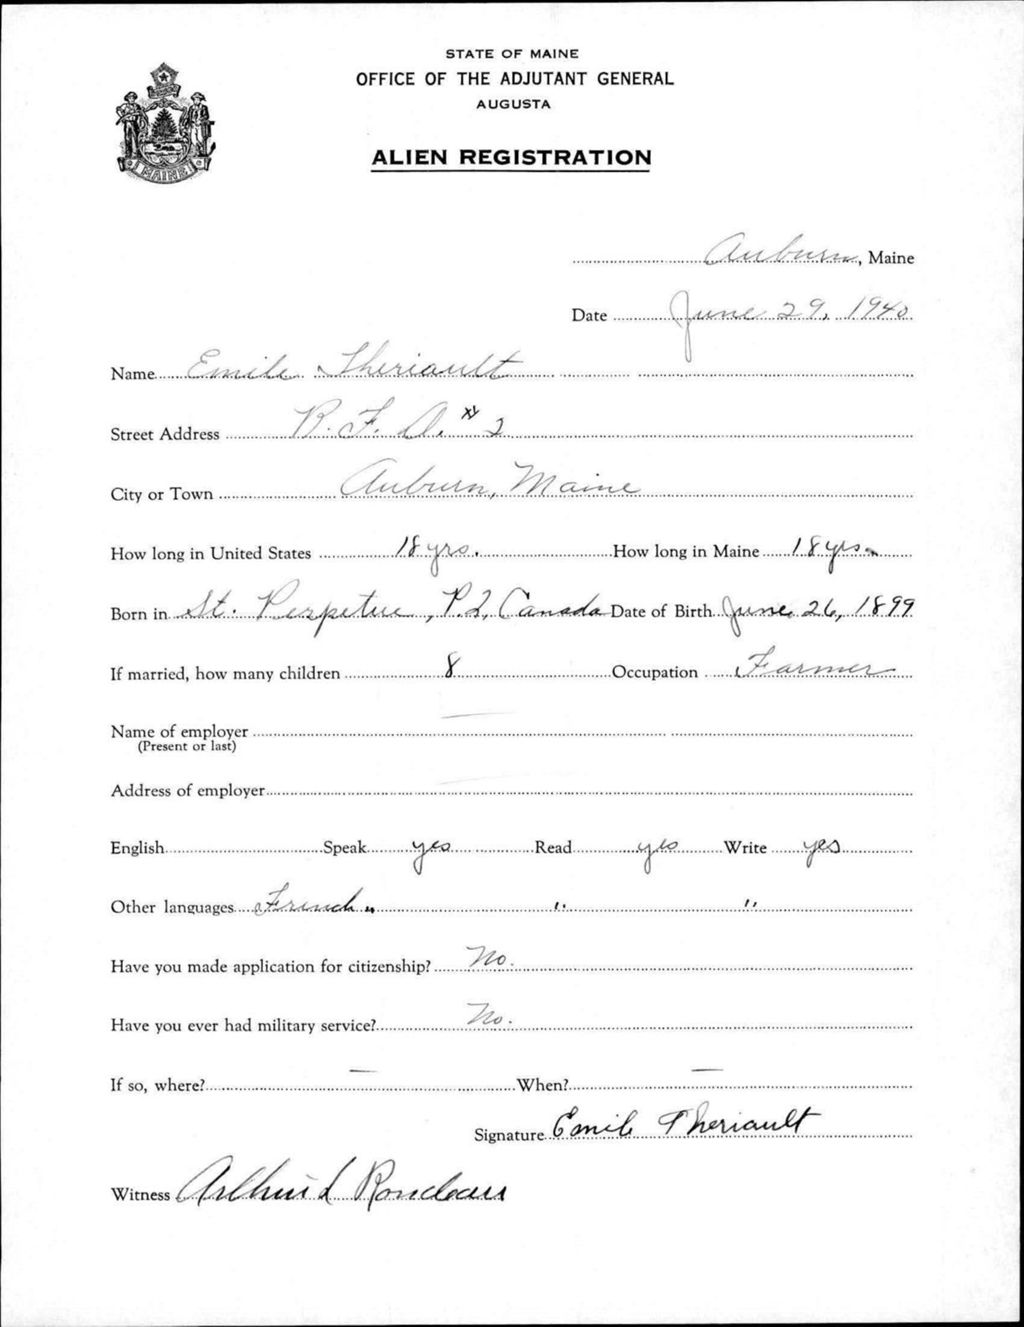 STATE OF MAINE
OFFICE OF THE ADJUTANT GENERAL
AUGUSTA
ALIEN REGISTRATION
MAINE
Auburn, Maine
Date June 29, 1940
Name Emile Theriault
Street Address R. F. D. # 2
City or Town Auburn, Maine
How long in United States 18 yrs. How long in Maine 18 yrs.
Born in St. Perpetue, P.Q, Canada Date of Birth June 26, 1899
If married, how many children 8 Occupation Farmer
Name of employer —
(Present or last)
Address of employer —
English Speak yes Read yes Write yes
Other languages French " " "
Have you made application for citizenship? No.
Have you ever had military service? No.
If so, where? — When? —
Signature Emile Theriault
Witness Arthur L Rondeau